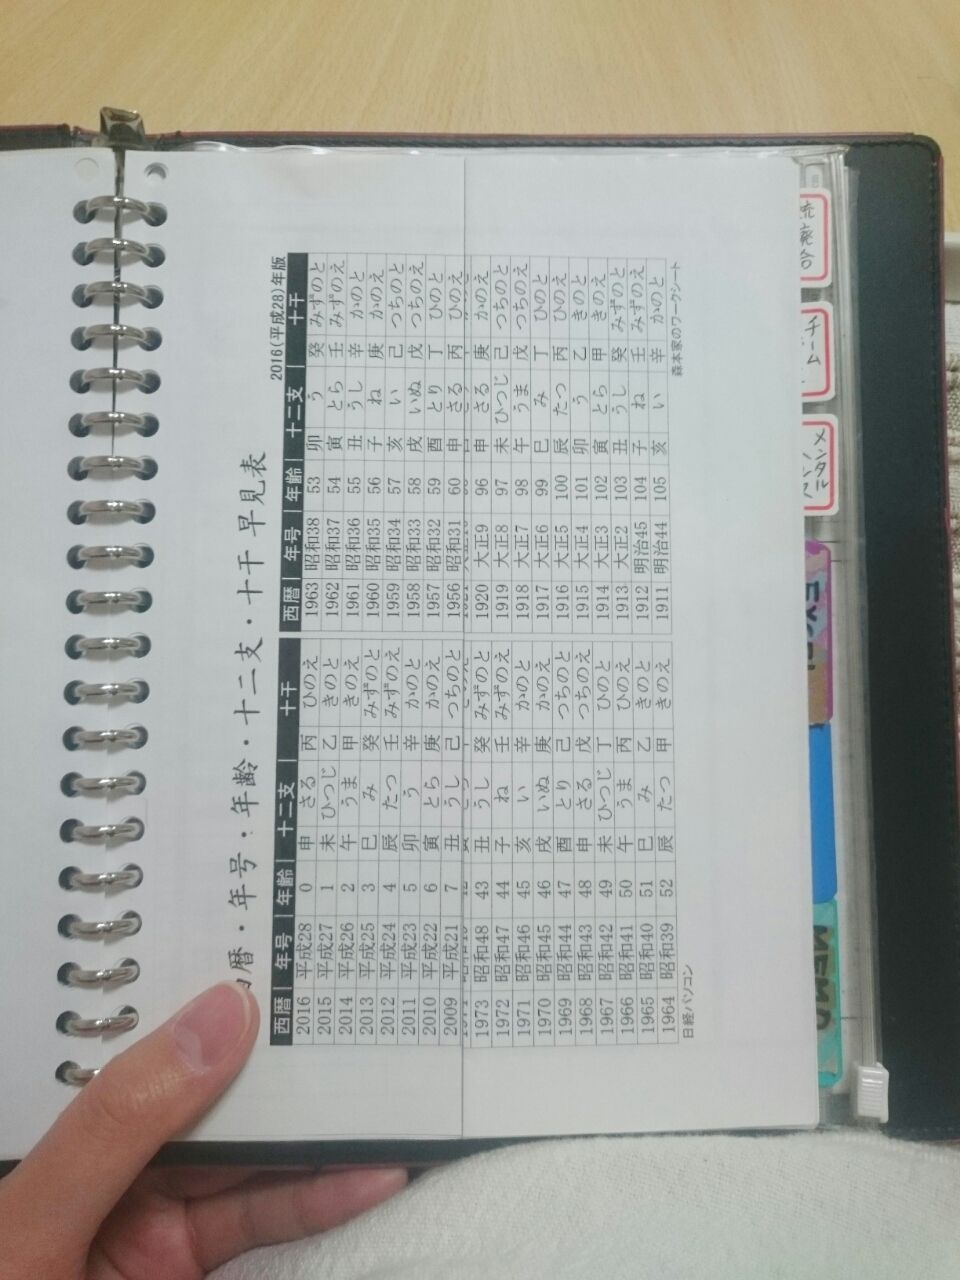 暦・年号・年齢・十二支・十干早見表
2016(平成28)年版
西暦 年号 年齢 十二支 十干
2016 平成28 0 申 さる 丙 ひのえ
2015 平成27 1 未 ひつじ 乙 きのと
2014 平成26 2 午 うま 甲 きのえ
2013 平成25 3 巳 み 癸 みずのと
2012 平成24 4 辰 たつ 壬 みずのえ
2011 平成23 5 卯 う 辛 かのと
2010 平成22 6 寅 とら 庚 かのえ
2009 平成21 7 丑 うし 己 つちのと
1973 昭和48 43 丑 うし 癸 みずのと
1972 昭和47 44 子 ね 壬 みずのえ
1971 昭和46 45 亥 い 辛 かのと
1970 昭和45 46 戌 いぬ 庚 かのえ
1969 昭和44 47 酉 とり 己 つちのと
1968 昭和43 48 申 さる 戊 つちのえ
1967 昭和42 49 未 ひつじ 丁 ひのと
1966 昭和41 50 午 うま 丙 ひのえ
1965 昭和40 51 巳 み 乙 きのと
1964 昭和39 52 辰 たつ 甲 きのえ
西暦 年号 年齢 十二支 十干
1963 昭和38 53 卯 う 癸 みずのと
1962 昭和37 54 寅 とら 壬 みずのえ
1961 昭和36 55 丑 うし 辛 かのと
1960 昭和35 56 子 ね 庚 かのえ
1959 昭和34 57 亥 い 己 つちのと
1958 昭和33 58 戌 いぬ 戊 つちのえ
1957 昭和32 59 酉 とり 丁 ひのと
1956 昭和31 60 申 さる 丙 ひのえ
1920 大正9 96 申 さる 庚 かのえ
1919 大正8 97 未 ひつじ 己 つちのと
1918 大正7 98 午 うま 戊 つちのえ
1917 大正6 99 巳 み 丁 ひのと
1916 大正5 100 辰 たつ 丙 ひのえ
1915 大正4 101 卯 う 乙 きのと
1914 大正3 102 寅 とら 甲 きのえ
1913 大正2 103 丑 うし 癸 みずのと
1912 明治45 104 子 ね 壬 みずのえ
1911 明治44 105 亥 い 辛 かのと
日経パソコン
森本家のワークシート
チーム
メンタル
MEMO